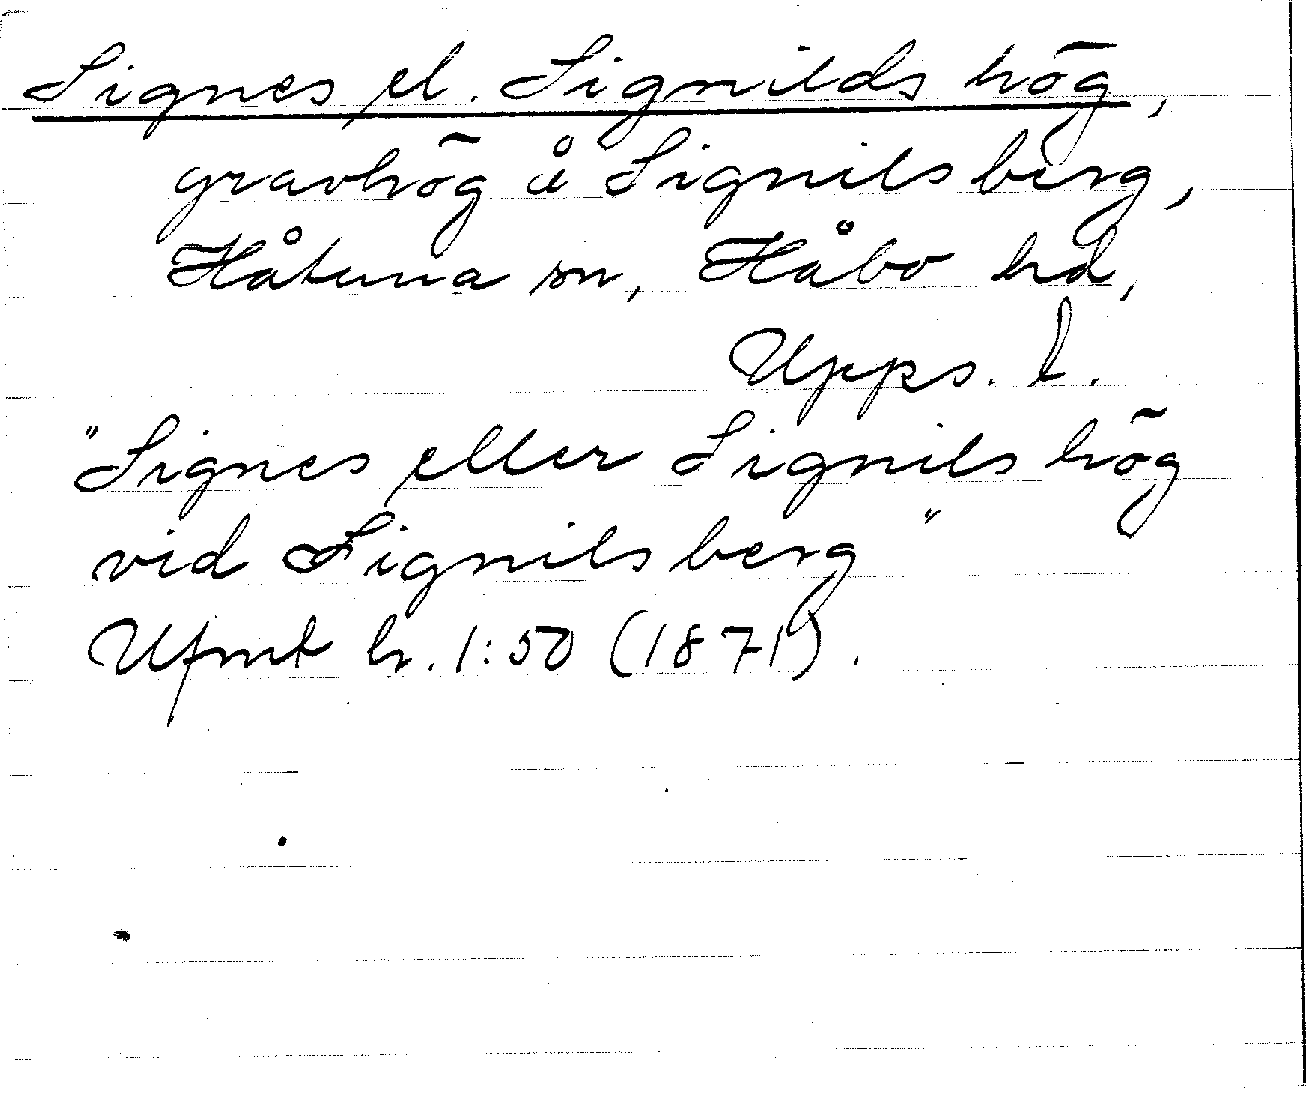 Signes el. Signilds hög,
gravhög å Signilsberg,
Håtuna sn, Håbo hd,
Upps. l.
"Signes eller Signils hög
vid Signilsberg"
Ufmt h. 1:50 (1871).